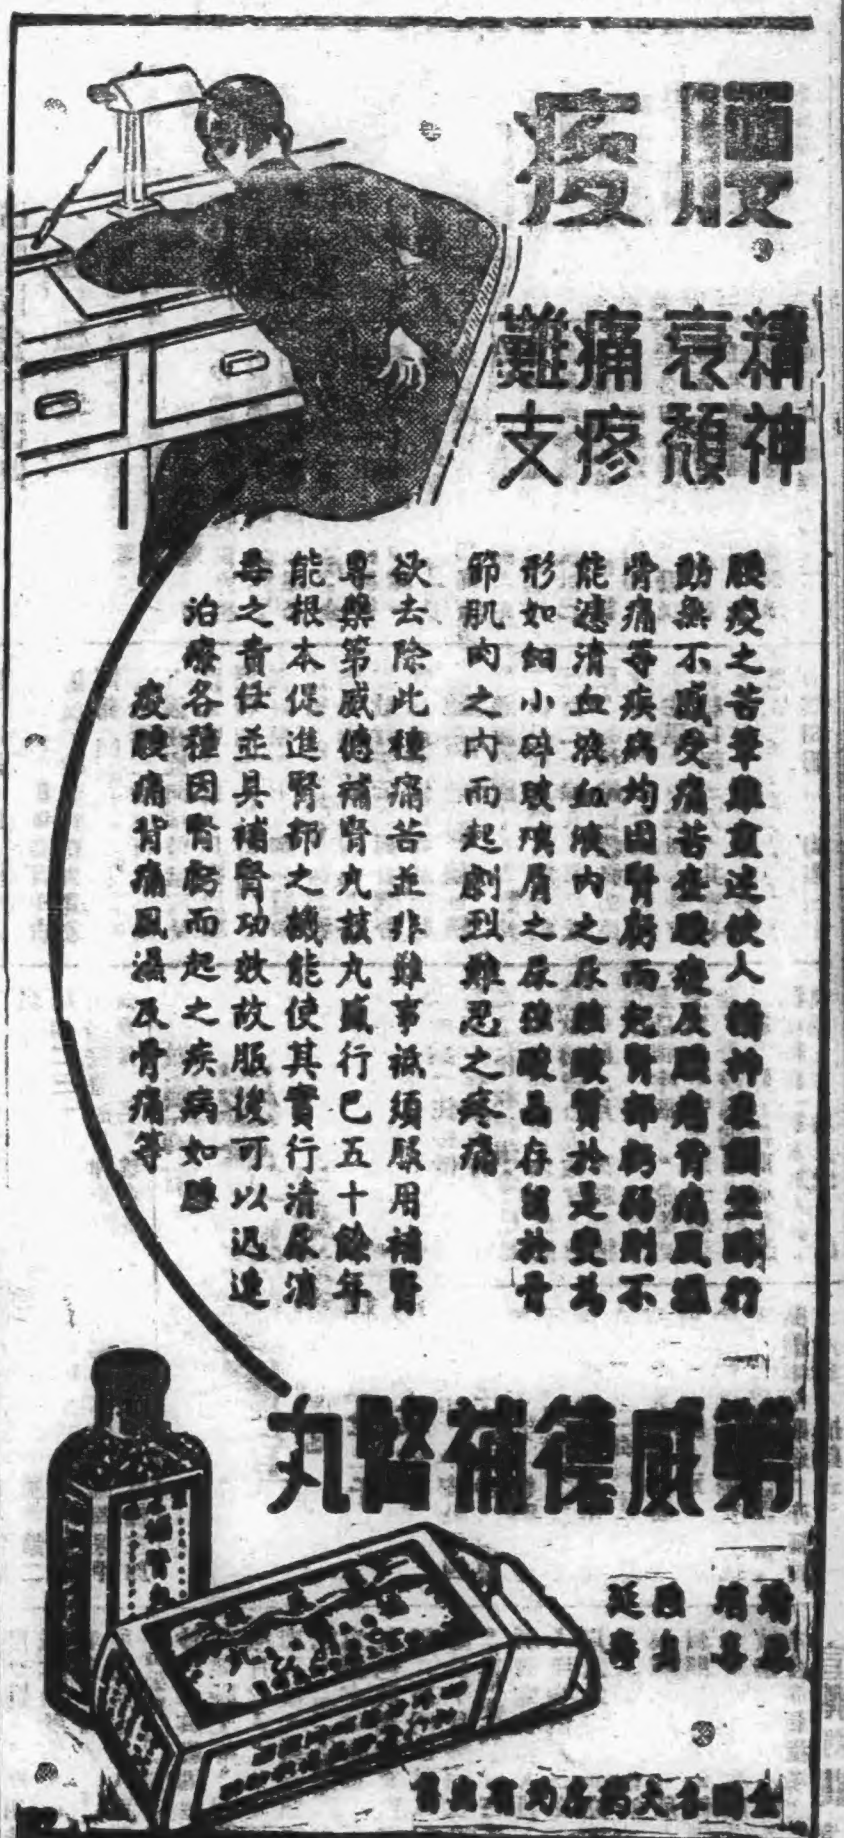 腰痠
精神
衰頹
痛疼
難支
腰痠之苦筆難宣述使人精神衰頹坐臥行
動無不感受痛苦查腰痠及腰痛背痛風濕
骨痛等疾病均因腎虧而起腎部虧弱則不
能濾清血液血液內之尿酸質於是變為
形如細小碎玻璃屑之尿酸晶存留於骨
節肌肉之內而起劇烈難忍之疼痛
欲去除此種痛苦並非難事祗須服用補腎
專藥第威德補腎丸該丸風行已五十餘年
能根本促進腎部之機能使其實行清尿消
毒之責任並具補腎功效故服後可以迅速
治療各種因腎虧而起之疾病如腰
痠腰痛背痛風濕及骨痛等
第威德補腎丸
補腎丸
全國各大藥房均有出售